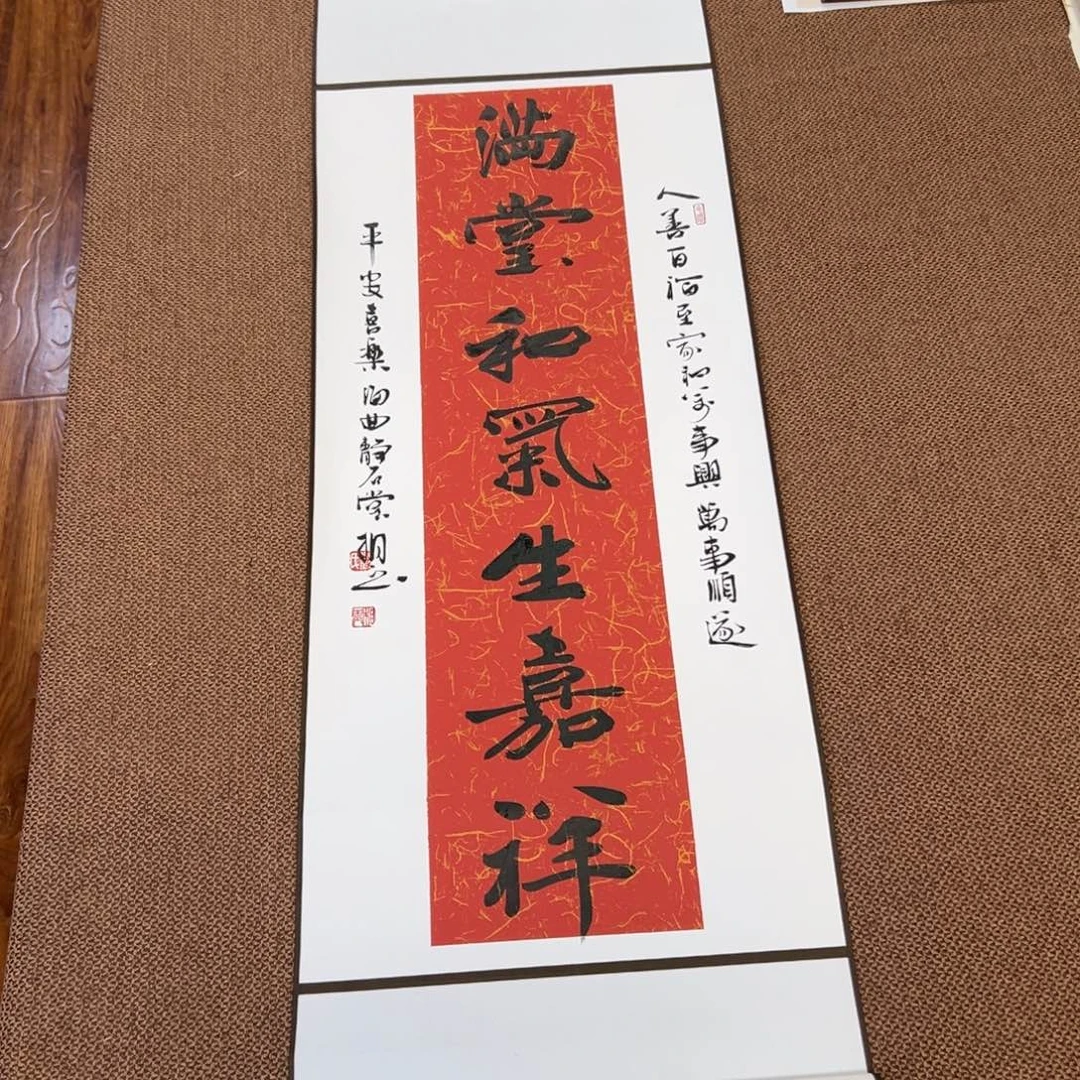 人善百福至家和万事興萬事順遂
滿堂和氣生嘉祥
平安喜樂陽曲靜石堂